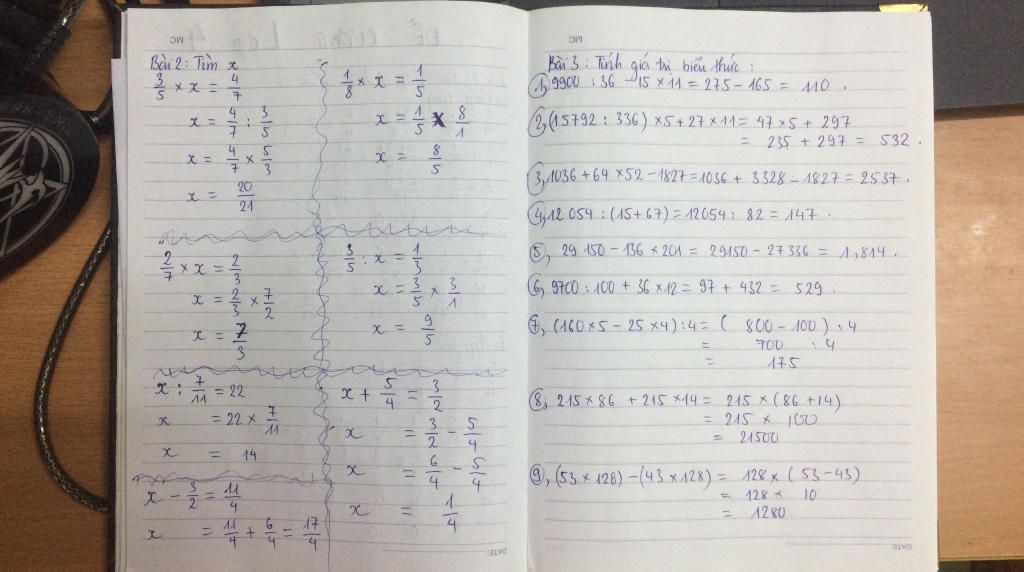 Bài 2: Tìm x
3/5 × x = 4/7
x = 4/7 : 3/5
x = 4/7 × 5/3
x = 20/21
1/8 × x = 1/5
x = 1/5 × 8/1
x = 8/5
2/7 × x = 2/3
x = 2/3 × 7/2
x = 7/3
3/5 : x = 1/3
x = 3/5 × 3/1
x = 9/5
x : 7/11 = 22
x = 22 × 7/11
x = 14
x + 5/4 = 3/2
x = 3/2 - 5/4
x = 6/4 - 5/4
x = 1/4
x - 3/2 = 11/4
x = 11/4 + 6/4 = 17/4
DATE
MC
Đề cương Lớp 4
MC
Bài 3: Tính giá trị biểu thức:
1, 9900 : 36 - 15 × 11 = 275 - 165 = 110.
2, (15792 : 336) × 5 + 27 × 11 = 47 × 5 + 297
= 235 + 297 = 532.
3, 1036 + 64 × 52 - 1827 = 1036 + 3328 - 1827 = 2537.
4, 12054 : (15 + 67) = 12054 : 82 = 147.
5, 29150 - 136 × 201 = 29150 - 27336 = 1,814.
6, 9700 : 100 + 36 × 12 = 97 + 432 = 529.
7, (160 × 5 - 25 × 4) : 4 = (800 - 100) : 4
= 700 : 4
= 175
8, 215 × 86 + 215 × 14 = 215 × (86 + 14)
= 215 × 100
= 21500
9, (53 × 128) - (43 × 128) = 128 × (53 - 43)
= 128 × 10
= 1280.
DATE